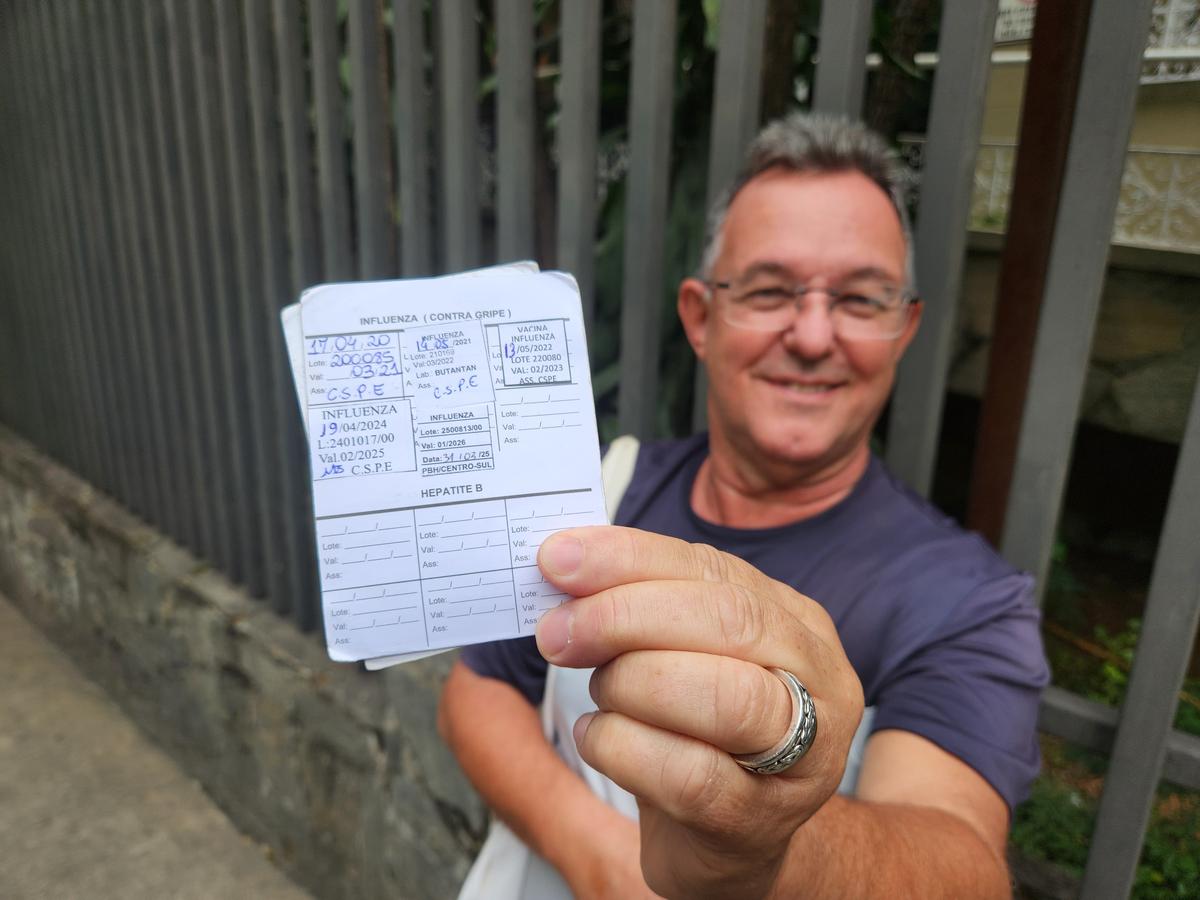 INFLUENZA ( CONTRA GRIPE )
17.04.20
Lote: 200085
Val: 03/21
Ass: C.S.P.E
INFLUENZA
14 05 /2021
Lote: 210169
Val:03/2022
Lab: BUTANTAN
Ass:
C.S.P.E
VACINA
INFLUENZA
13/05/2022
LOTE 220080
VAL: 02/2023
ASS. CSPE
INFLUENZA
19/04/2024
L:2401017/00
Val.02/2025
C.S.P.E
INFLUENZA
Lote: 2500813/00
Val: 01/2026
Data: /25
PBH/CENTRO-SUL
__/__/__
Lote:
Val: __/__/__
Ass:
HEPATITE B
__/__/__
Lote:
Val: __/__/__
Ass:
__/__/__
Lote:
Val: __/__/__
Ass:
__/__/__
Lote:
Val:
__/__/__
Lote:
Val: __/__/__
Ass:
__/__/__
Lote:
Val: __/__/__
Ass: